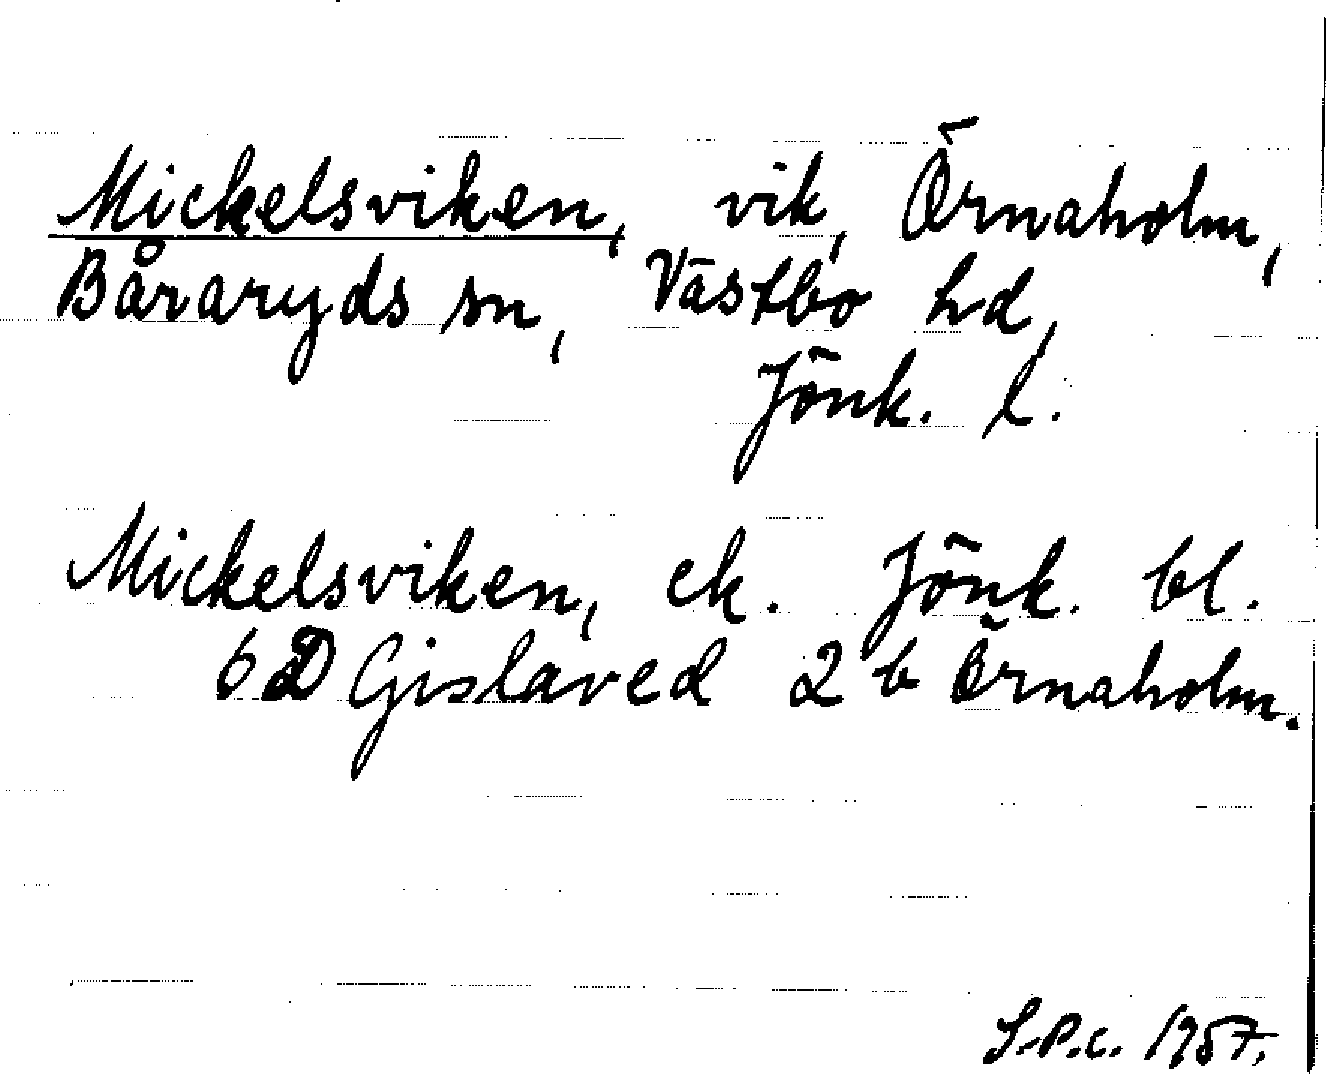 Mickelsviken, vik, Örnaholm,
Båraryds sn, Västbo hd,
Jönk. l.
Mickelsviken, ek. Jönk. bl.
6 D Gislaved 2 b Örnaholm.
S.P.c. 1957.